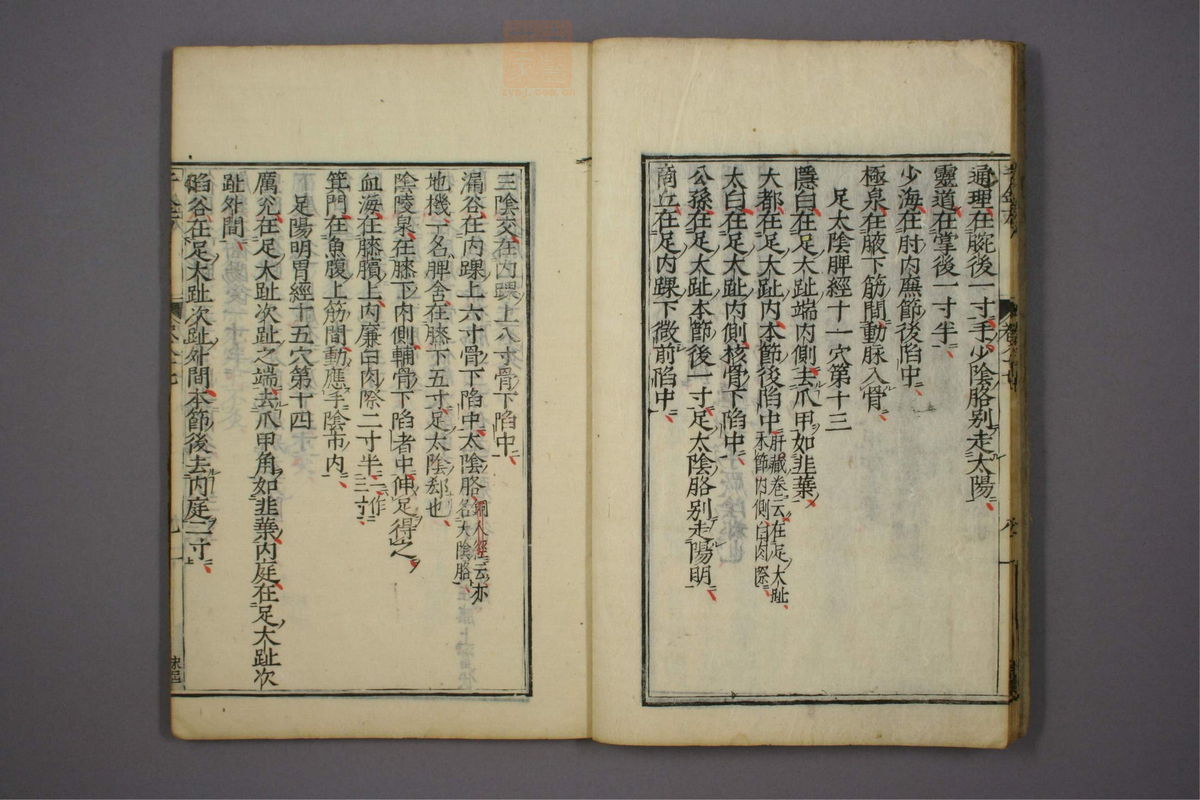 通理在腕後一寸手少陰胳别走太陽
靈道在掌後一寸半
少海在肘内廉節後陷中
極泉在腋下筋間動脉入骨
足太陰脾經十一穴第十三
隱白在足大趾端内側去爪甲如韭葉
大都在足大趾内本節後陷中肝藏卷云在足大趾本節内側白肉際
太白在足大趾内側核骨下陷中
公孫在足大趾本節後一寸足太陰胳别走陽明
商丘在足内踝下微前陷中
三陰交在内踝上八寸骨下陷中
漏谷在内踝上六寸骨下陷中太陰胳銅人經云亦名太陰胳
地機一名脾舍在膝下五寸足太陰郄也
陰陵泉在膝下内側輔骨下陷者中伸足得之
血海在膝臏上内廉白肉際二寸半一作三寸
箕門在魚腹上筋間動應手陰市内
足陽明胃經十五穴第十四
厲兊在足大趾次趾之端去爪甲角如韭葉内庭在足大趾次
趾外間
陷谷在足大趾次趾外間本節後去内庭二寸